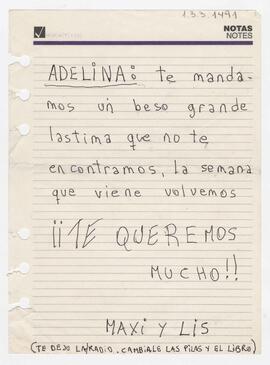 1.3.3.1491
NOTAS
NOTES
ADELINA: te manda-
mos un beso grande
lastima que no te
encontramos, la semana
que viene volvemos
¡¡TE QUEREMOS
MUCHO!!
MAXI Y LIS
(TE DEJO LA RADIO, CAMBIALE LAS PILAS Y EL LIBRO)